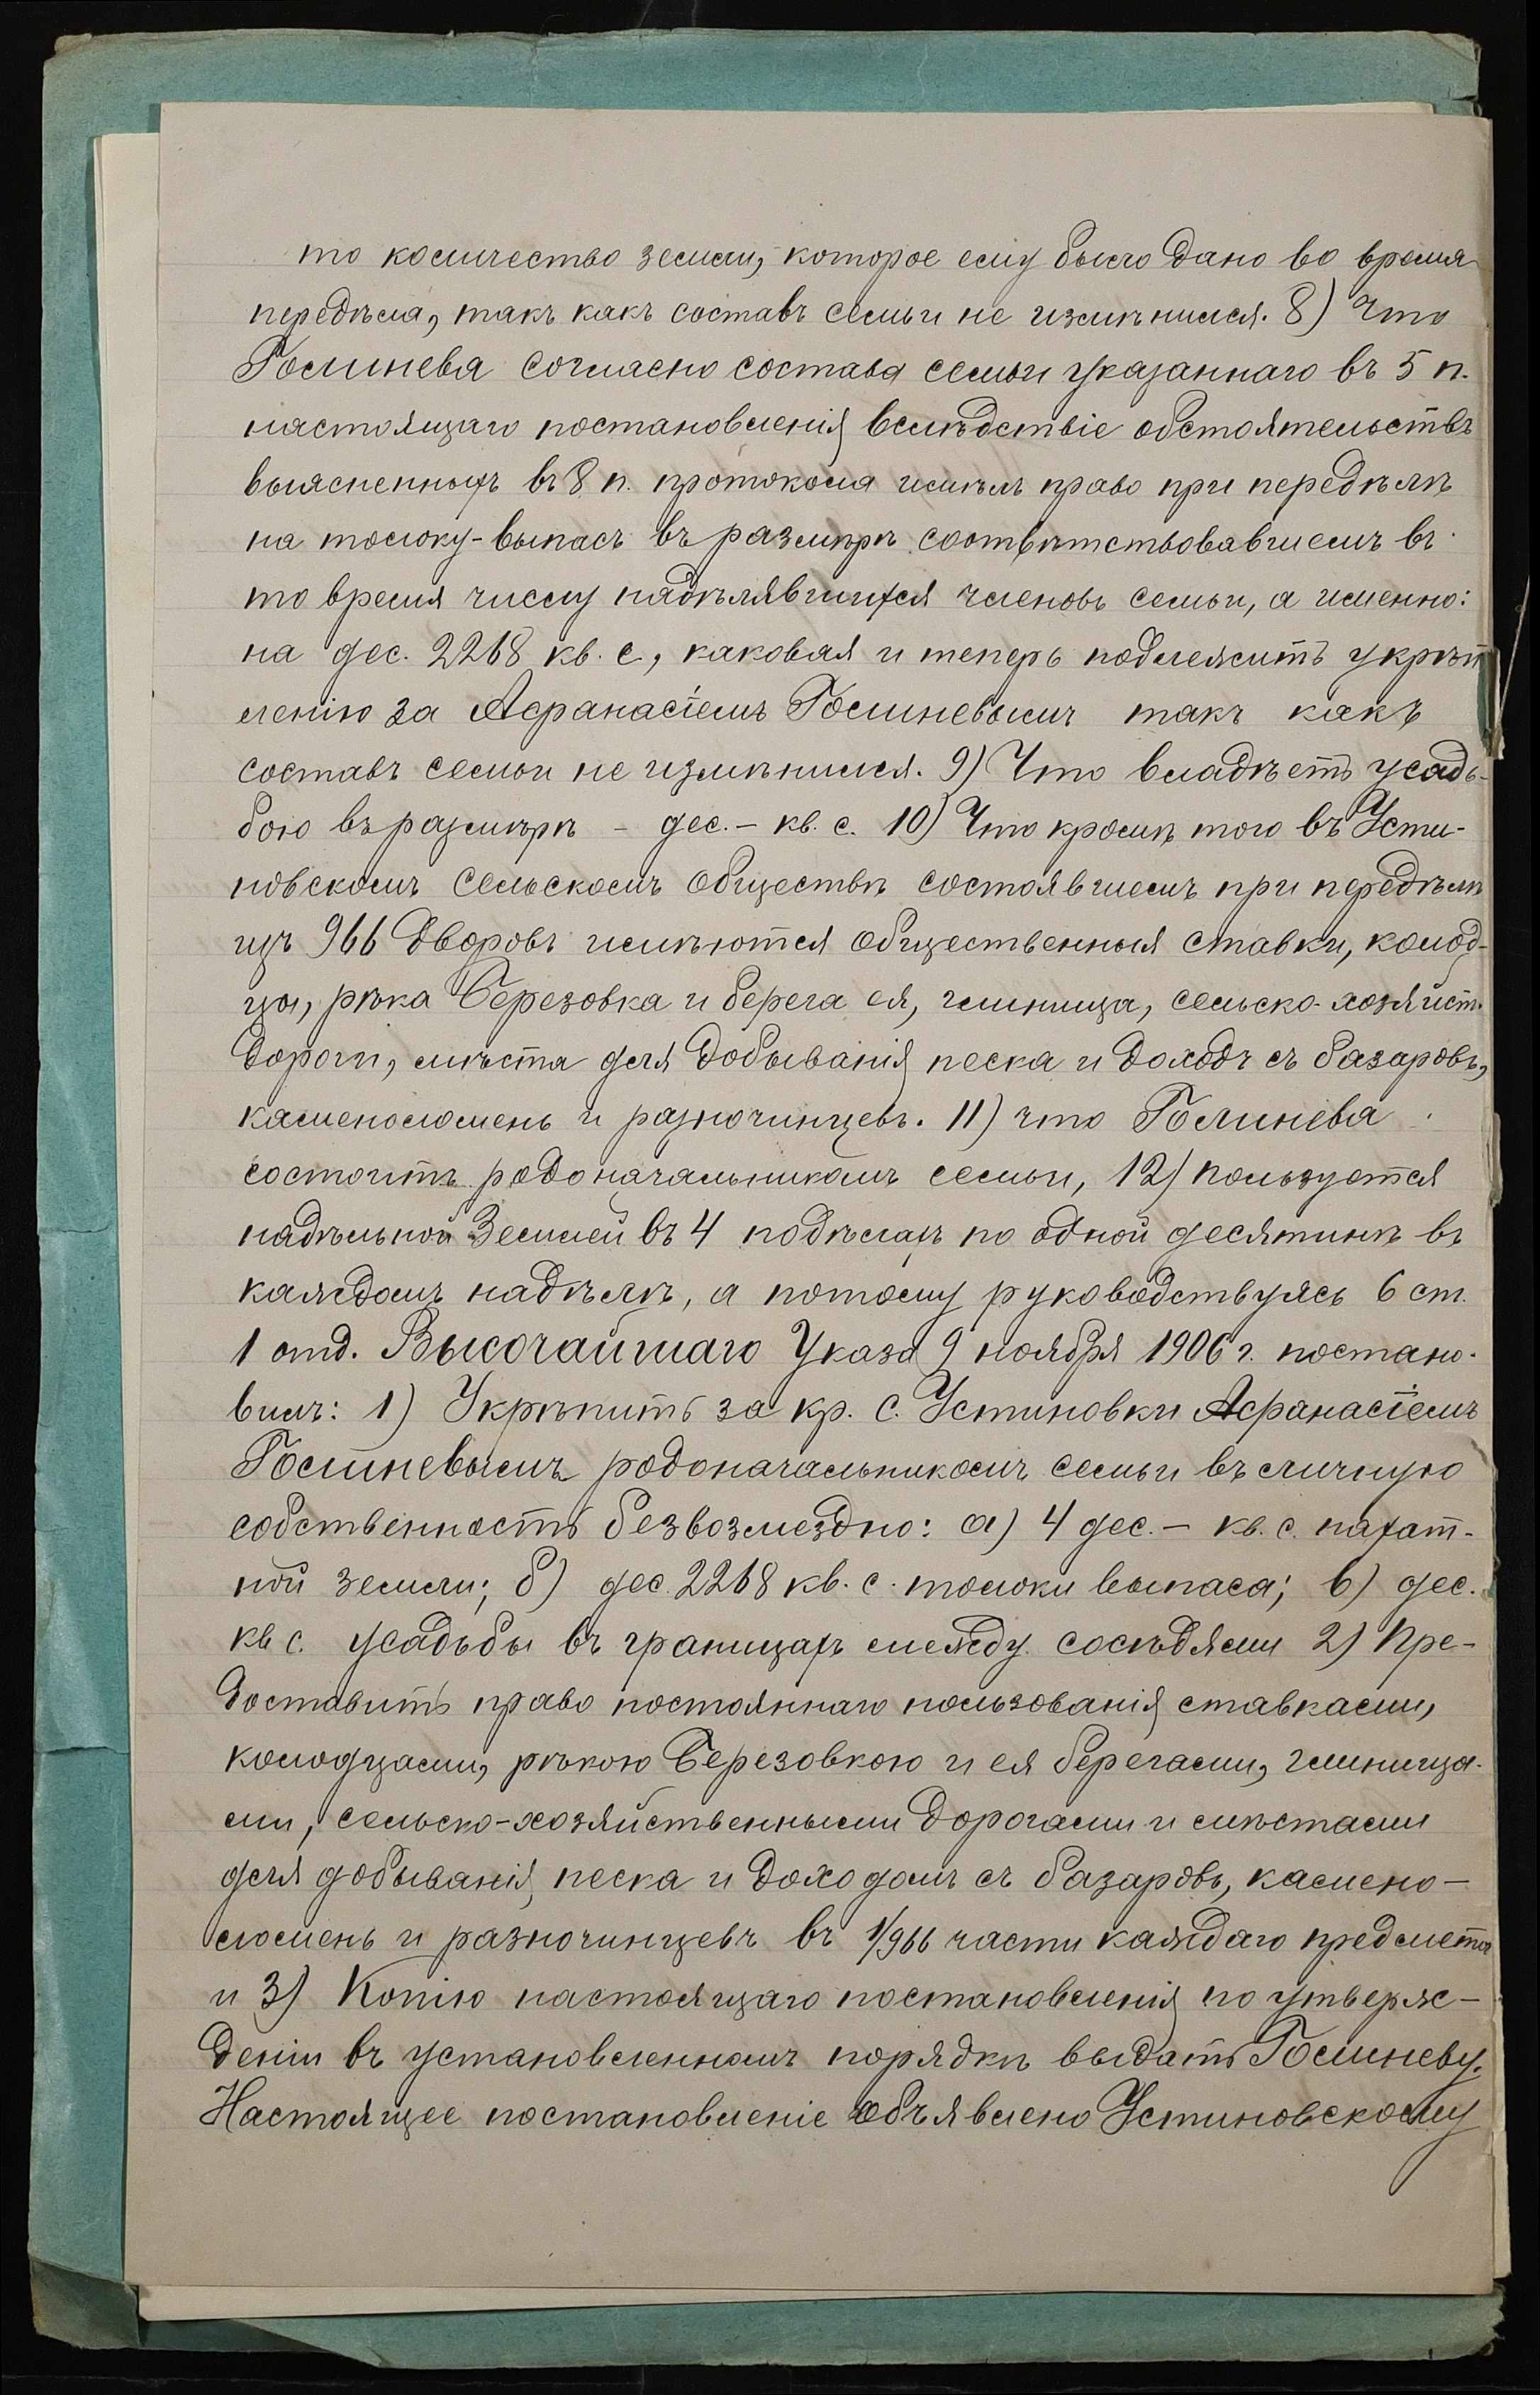 то количество земли, которое ему было дано во время
передѣла, такъ какъ составъ семьи не измѣнился. 8) Что
Голинева согласно состава семьи указаннаго въ 5 п.
настоящаго постановленія вслѣдствіе обстоятельствъ
выясненныхъ въ 8 п. протокола имѣлъ право при передѣлѣ
на толоку-выпасъ въ размѣрѣ соотвѣтствовавшемъ въ
то время числу надѣлявшихся членовъ семьи, а именно:
на дес. 2268 кв. с., каковая и теперь подлежитъ укрѣп
ленію за Афанасіемъ Голиневымъ такъ какъ
составъ семьи не измѣнился. 9) Что владѣетъ усадь-
бою въ размѣрѣ - дес. - кв. с. 10) Что кромѣ того въ Усти-
новскомъ сельскомъ обществѣ состоявшемъ при передѣлѣ
изъ 966 дворовъ имѣются общественныя ставки, колод-
цы, рѣка Березовка и берега ея, глинища, сельско-хозяйст.
дороги, мѣста для добыванія песка и доходъ съ базаровъ,
каменоломень и разночинцевъ. 11) что Голинева
состоитъ родоначальникомъ семьи, 12) пользуется
надѣльной землей въ 4 подѣлахъ по одной десятинѣ въ
каждомъ надѣлѣ, а потому руководствуясь 6 ст.
1 отд. Высочайшаго Указа 9 ноября 1906 г. постано-
вилъ: 1) Укрѣпить за кр. с. Устиновки Афанасіемъ
Голиневымъ родоначальникомъ семьи въ личную
собственность безвозмездно: а) 4 дес. - кв. с. пахат-
ной земли; б) дес. 2268 кв. с. толоки выпаса; в) дес.
кв с. усадьбы въ границахъ между сосѣдями 2) Пре-
доставить право постояннаго пользованія ставками,
колодцами, рѣкою Березовкою и ея берегами, глинища-
ми, сельско-хозяйственными дорогами и мѣстами
для добыванія песка и доходомъ съ базаровъ, камено-
ломень и разночинцевъ въ 1/966 части каждаго предмета
и 3) Копію настоящаго постановленія по утверж-
деніи въ установленномъ порядкѣ выдать Голиневу.
Настоящее постановленіе объявлено Устиновскому